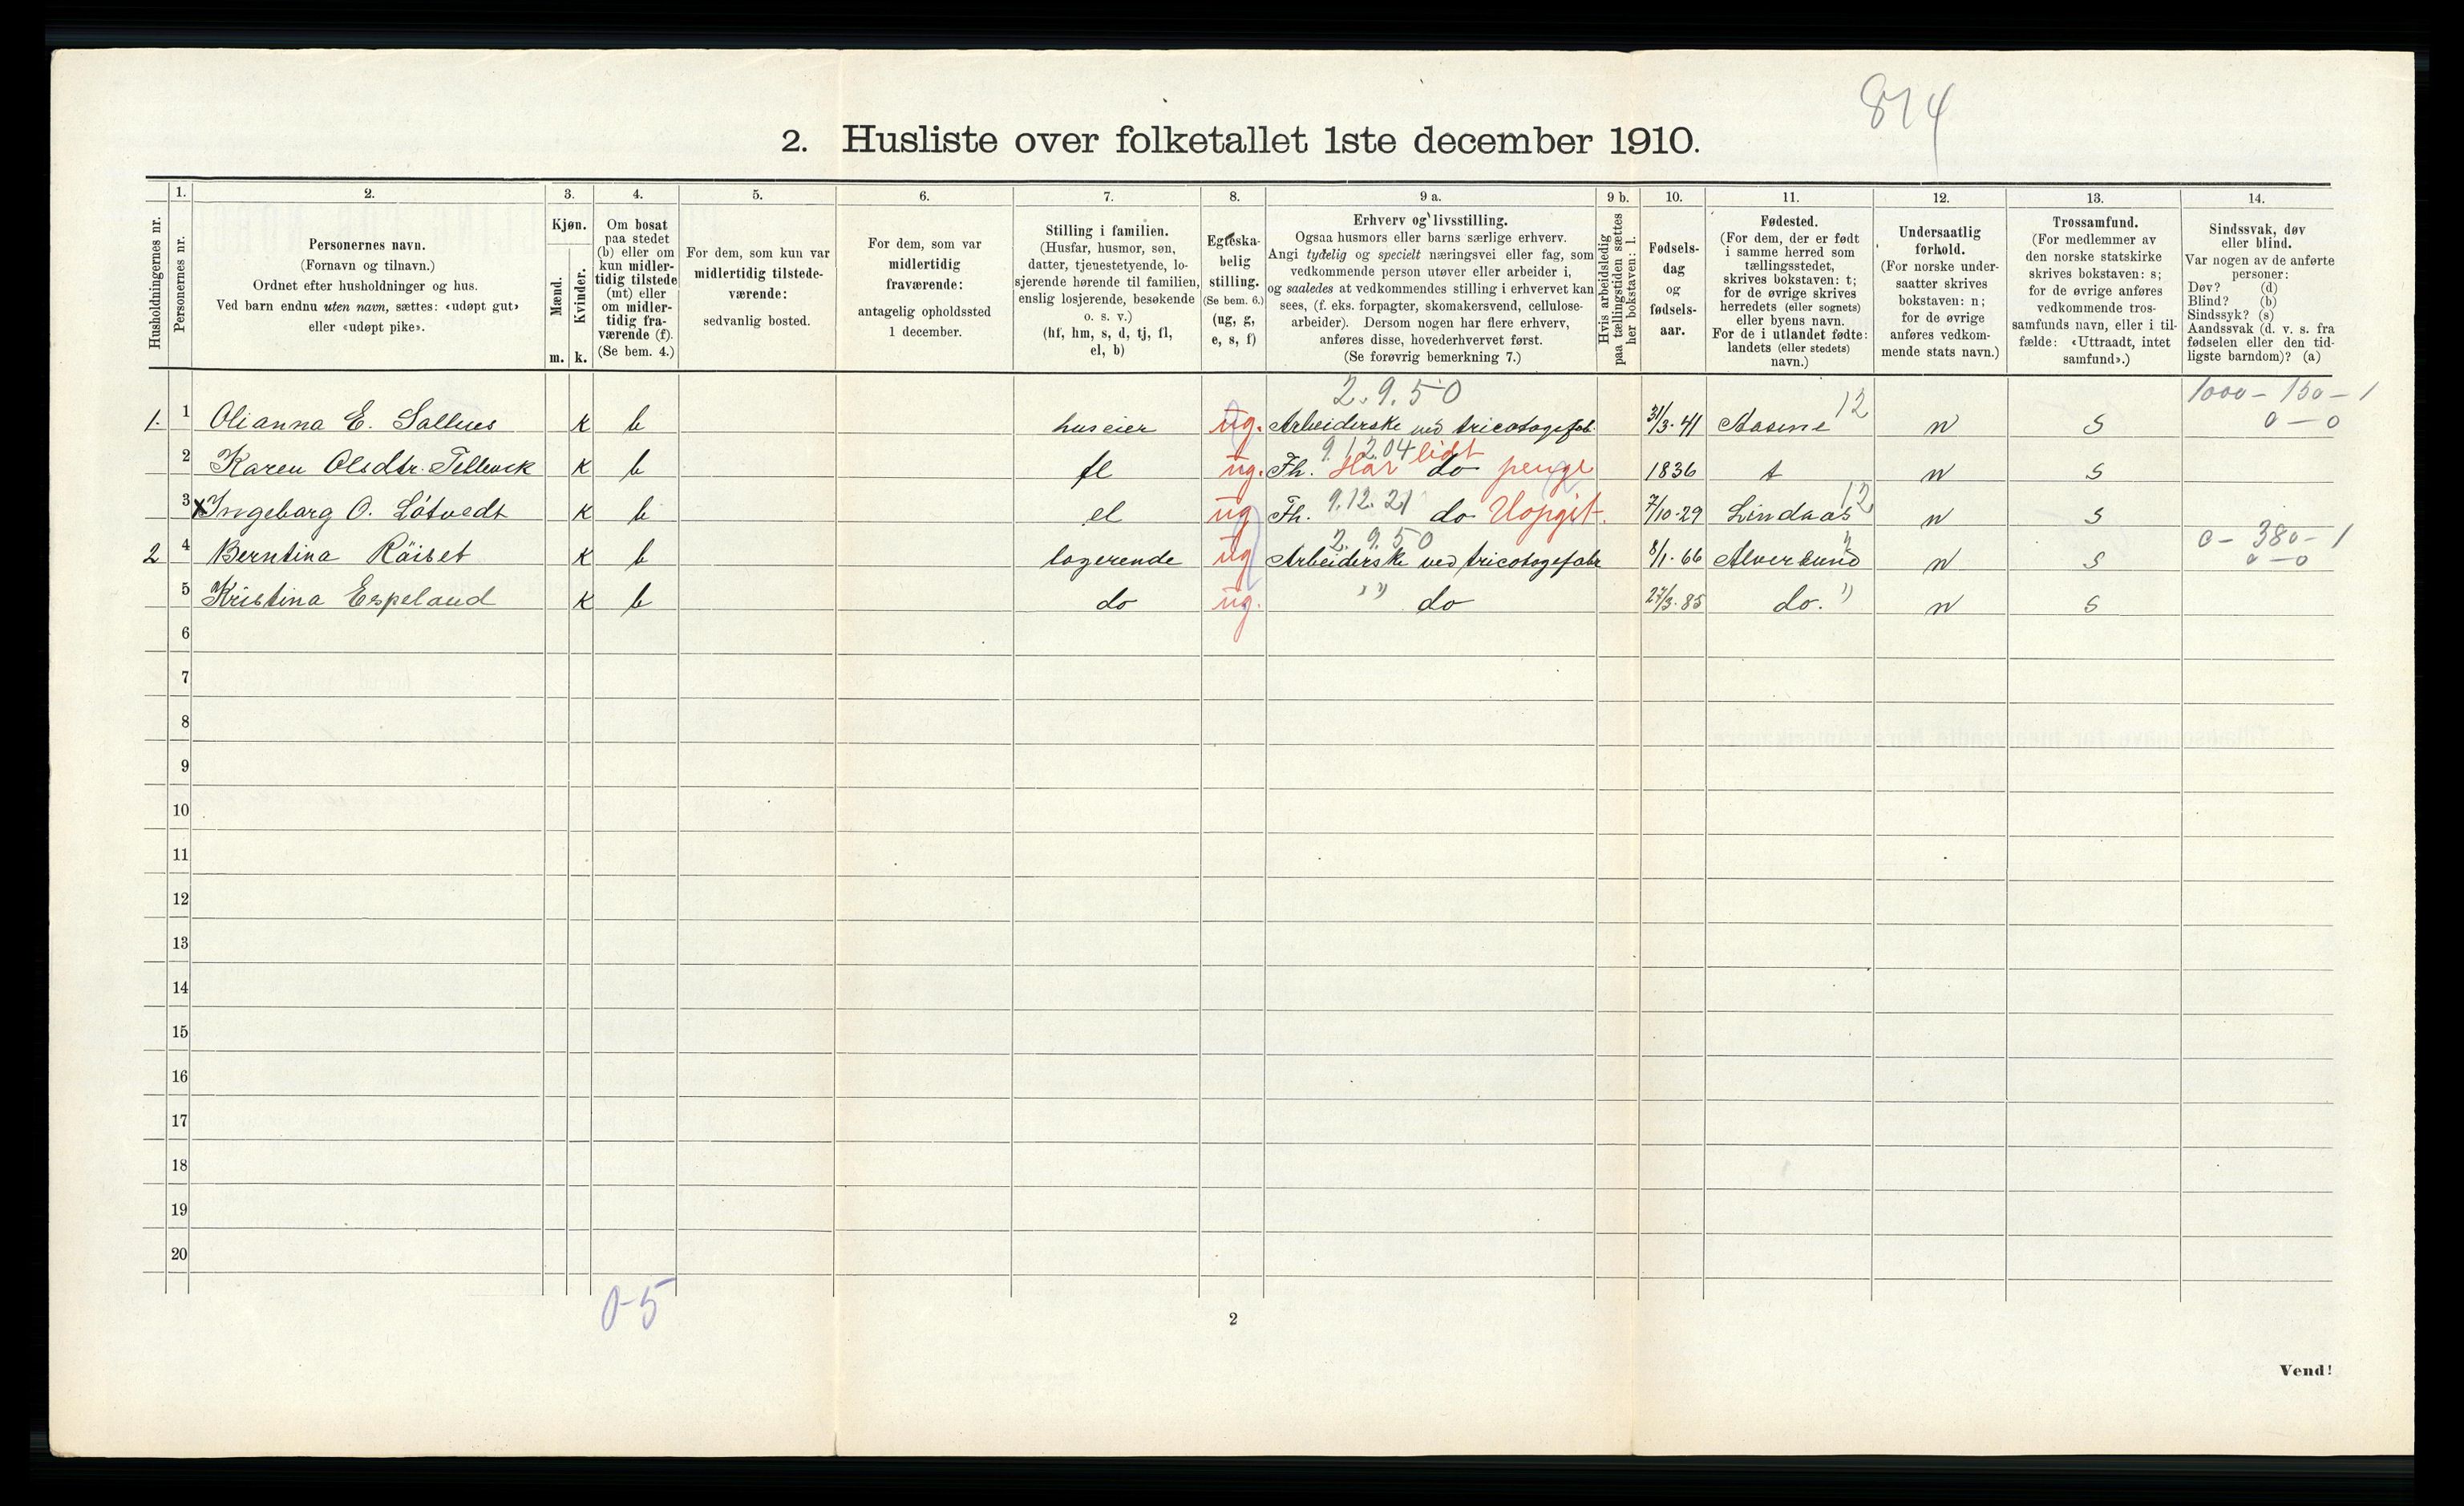 874
2. Husliste over folketallet 1ste december 1910.
Husholdningernes nr.
1.
Personernes nr.
2.
Personernes navn.
(Fornavn og tilnavn.)
Ordnet efter husholdninger og hus.
Ved barn endnu uten navn, sættes: «udøpt gut»
eller «udøpt pike».
3.
Kjøn.
Mænd.
Kvinder.
m. k.
4.
Om bosat
paa stedet
(b) eller om
kun midler-
tidig tilstede
(mt) eller
om midler-
tidig fra-
værende (f).
(Se bem. 4.)
5.
For dem, som kun var
midlertidig tilstede-
værende:
sedvanlig bosted.
6.
For dem, som var
midlertidig
fraværende:
antagelig opholdssted
1 december.
7.
Stilling i familien.
(Husfar, husmor, søn,
datter, tjenestetyende, lo-
sjerende hørende til familien,
enslig losjerende, besøkende
o. s. v.)
(hf, hm, s, d, tj, fl,
el, b)
8.
Egteska-
belig
stilling.
(Se bem. 6.)
(ug, g,
e, s, f)
9 a.
Erhverv og livsstilling.
Ogsaa husmors eller barns særlige erhverv.
Angi tydelig og specielt næringsvei eller fag, som
vedkommende person utøver eller arbeider i,
og saaledes at vedkommendes stilling i erhvervet kan
sees, (f. eks. forpagter, skomakersvend, cellulose-
arbeider). Dersom nogen har flere erhverv,
anføres disse, hovederhvervet først.
(Se forøvrig bemerkning 7.)
9 b.
Hvis arbeidsledig
paa tællingstiden sættes
her bokstaven: l.
10.
Fødsels-
dag
og
fødsels-
aar.
11.
Fødested.
(For dem, der er født
i samme herred som
tællingsstedet,
skrives bokstaven: t;
for de øvrige skrives
herredets (eller sognets)
eller byens navn.
For de i utlandet fødte:
landets (eller stedets)
navn.)
12.
Undersaatlig
forhold.
(For norske under-
saatter skrives
bokstaven: n;
for de øvrige
anføres vedkom-
mende stats navn.)
13.
Trossamfund.
(For medlemmer av
den norske statskirke
skrives bokstaven: s;
for de øvrige anføres
vedkommende tros-
samfunds navn, eller i til-
fælde: «Uttraadt, intet
samfund».)
14.
Sindssvak, døv
eller blind.
Var nogen av de anførte
personer:
Døv? (d)
Blind? (b)
Sindssyk? (s)
Aandssvak (d. v. s. fra
fødselen eller den tid-
ligste barndom)? (a)
2.9.50 12 1000 - 150 - 1
1. 1 Olianna E. k b huseier ug. Arbeiderske ved tricotagefab. 31/3-41 Aasene n s 0 - 0
9.12.04 lidt
2 Karen Olsdtr. k b fl ug. Fh. Har do penge 1836 t n s
9.12.21 12
3 x Ingeborg O. Låtvedt k b el ug Fh. do Uopgit. 7/10-29 Lindaas n s
2.9.50 " 0 - 380 - 1
2 4 Berntina Räiset k b logerende ug Arbeiderske ved tricotagefabr 8/1-66 Alversund n s 0 - 0
5 Kristina Espeland k b do ug. " do 27/3-85 do. " n s
6
7
8
9
10
11
12
13
14
15
16
17
18
19
20
0-5
2
Vend!